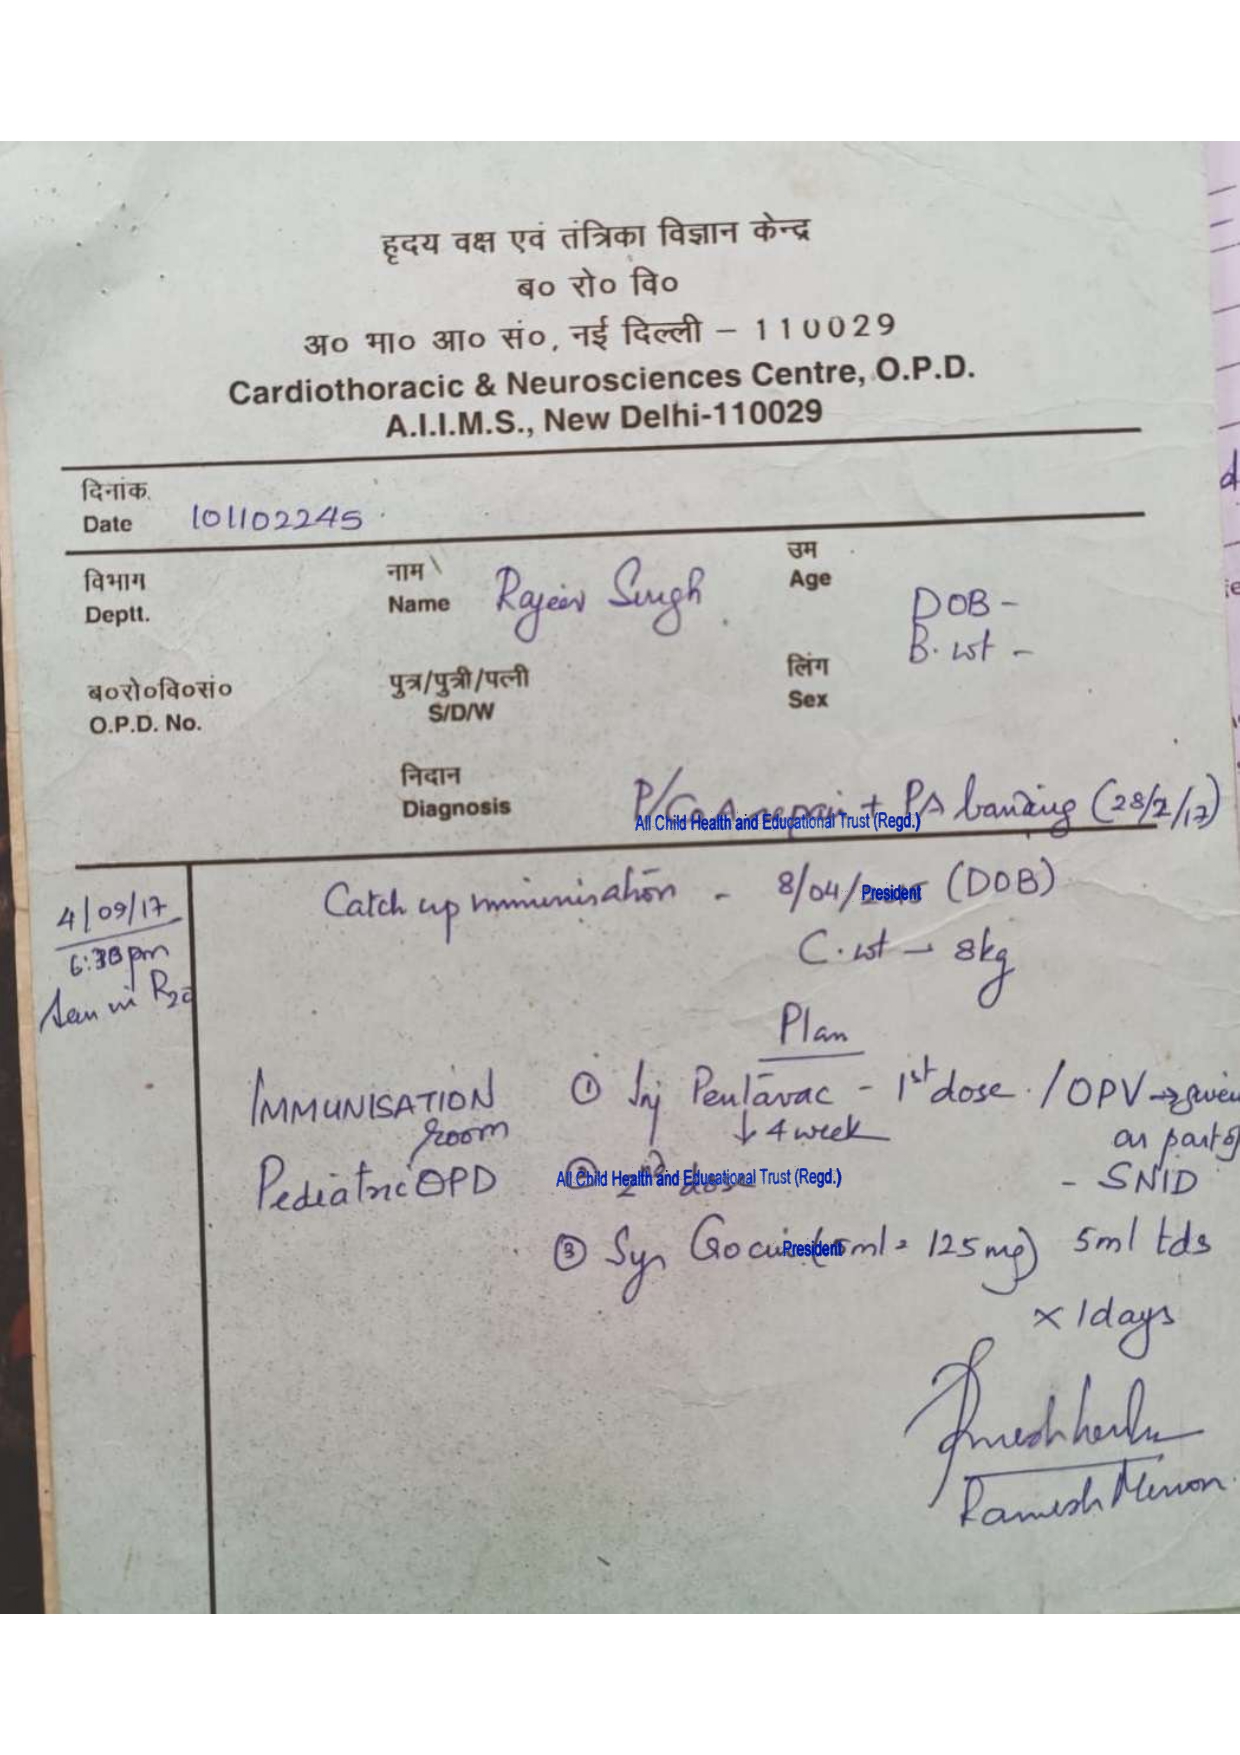 हृदय वक्ष एवं तंत्रिका विज्ञान केन्द्र
ब० रो० वि०
अ० भा० आ० सं०, नई दिल्ली – 110029
Cardiothoracic & Neurosciences Centre, O.P.D.
A.I.I.M.S., New Delhi-110029
दिनांक
Date 101102245
विभाग
Deptt.
नाम
Name Rajeev Singh
उम
Age
DOB -
B. wt -
ब०रो०वि०सं०
O.P.D. No.
पुत्र/पुत्री/पत्नी
S/D/W
लिंग
Sex
निदान
Diagnosis P/CoA repair + PA banding (28/2/17)
All Child Health and Educational Trust (Regd.)
4/09/17
6:30 pm
Seen in
Catch up immunisation - 8/04/ (DOB)
President
C. wt - 8kg
Plan
IMMUNISATION room
Pediatric OPD
① Inj Pentavac - 1st dose. / OPV → given
↓ 4 week
as part of
- SNID
② 2nd dose
All Child Health and Educational Trust (Regd.)
③ Syr (5ml = 125mg) 5ml tds
President
x 1 days
Ramesh Menon